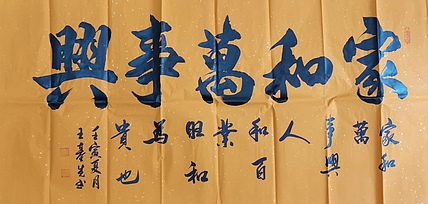 家和萬事興
家和
萬
事興
人
和百
業
旺和
為
貴也
壬寅夏月
王